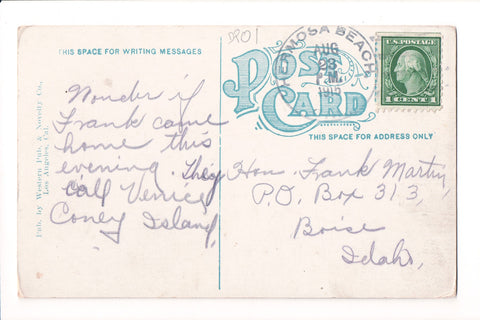 D201
THIS SPACE FOR WRITING MESSAGES
POST
CARD
THIS SPACE FOR ADDRESS ONLY
HERMOSA BEACH
AUG
23
P.M.
1915
U.S. POSTAGE
1 CENT 1
Wonder if
Frank came
home this
evening. They
call Venice
Coney Island.
Hon. Frank Martin
P.O. Box 313,
Boise
Idaho,
Pub. by Western Pub. & Novelty Co.,
Los Angeles, Cal.